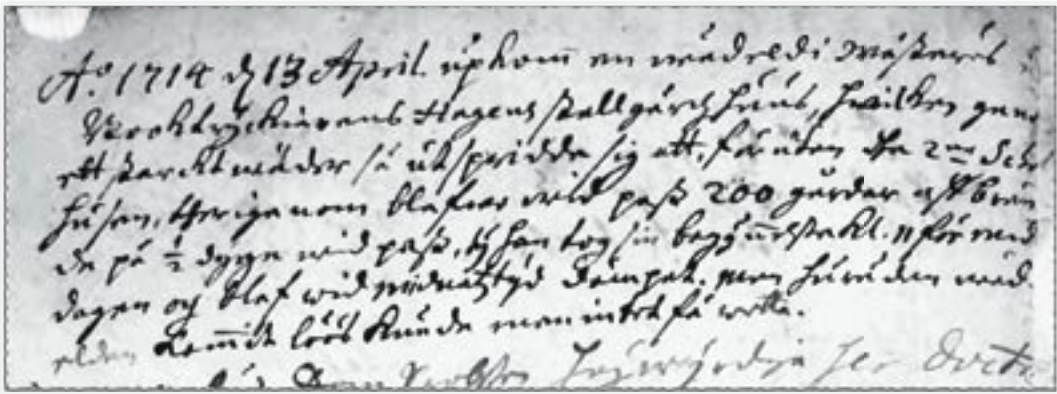 Ao. 1714 d 13 April. upkom en wådeld i Wästerås
Booktryckiarens Hagens stallgårdz huus, hwilken genom
ett starckt wäder så utspridde sig att, förutan the 2ne
husen, therigenom blefwo wid pass 200 gårdar
de på ½ dygn wid pass, ty han tog sin begynnelse kl. 11 för mid
dagen og blef wid midnatz tyd dämpat. Men huru den wåd
elden kommit löös kunde man intet få weta.